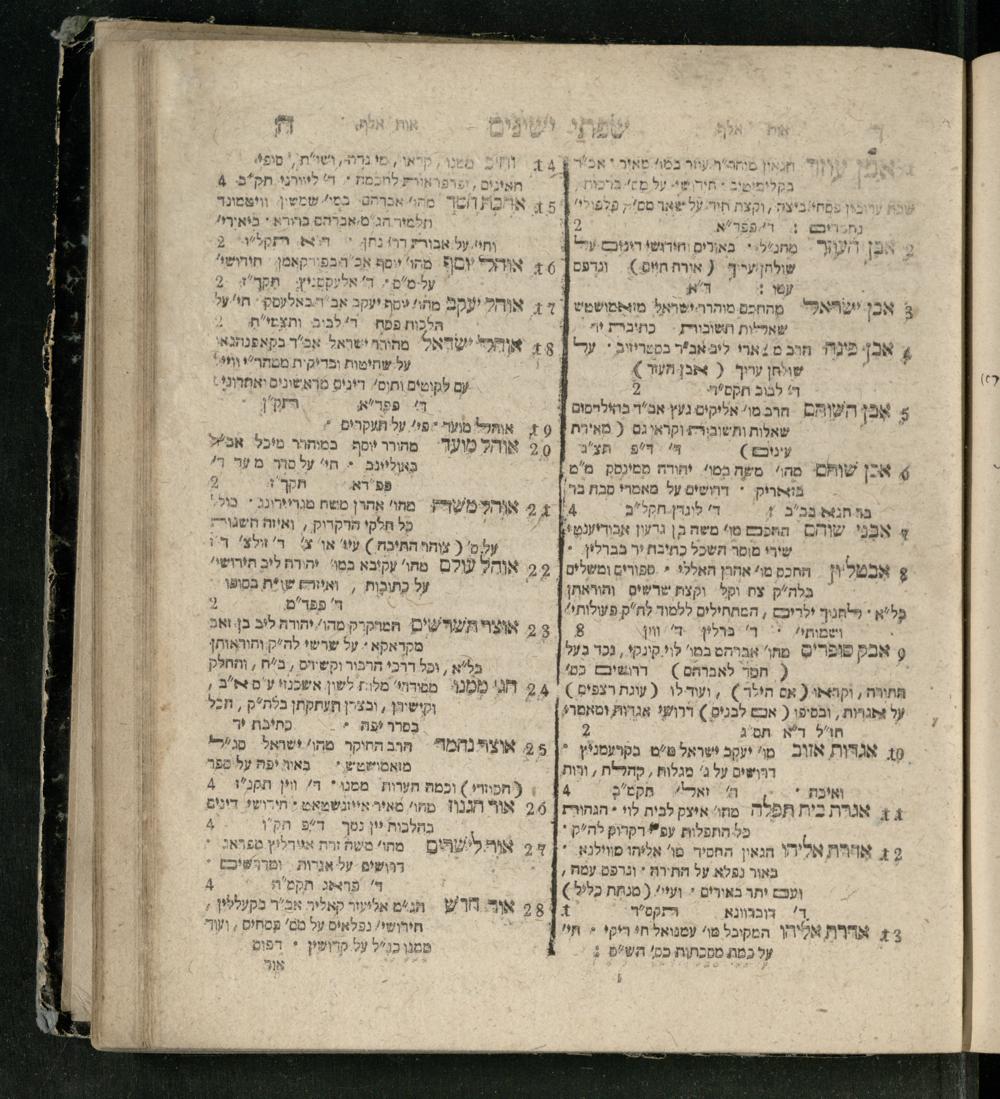 ד אות אלף שפתי ישינים אות אלף ה
1 אבן עוזר הגאון מוהר״ר עוזר במו׳ מאיר אב״ד
בקלימטיב חידושי על מס׳ ברכות,
שבת ערובין פסחי׳ ביצה, וקצת חיד׳ על שאר מס׳, פלפולי׳
נחמדים : ד׳ פפד״א 2
2 אבן העוזר מהנ״ל באורים וחידושי דינים על
שולחן ערוך (אורח חיים) ונדפס
עמו : ד״א
3 אבן ישראל מהחכם מוהרר ישראל מזאמושטש
שאלות תשובות כתיבת יד
4 אבן פינה הרב מ׳ ארי׳ ליב אב״ד בסטריזוב על
שולחן ערוך (אבן העזר)
ד׳ לבוב תקס״ד 2
5 אבן השוהם הרב מו׳ אליקים געץ אב״ד בהילדסום
שאלות ותשובות וקראו גם (מאירת
עינים) ד״פ תצ״ג
6 אבן שוהם מהו׳ משה במו׳ יהודה ממינסק מ״מ
בזאריק דרושים על מאמרי סבת בר
בר חנא בב״ב ד׳ לונדון תקל״ב 4
7 אבני שוהם החכם מו׳ משה בן גרעון אבודיענטי
שירי מוסר השכל כתיבת יד בברלין
8 אבטליון החכם מו׳ אהרן האללי ספורים ומשלים
בלה״ק צח וקל וקצת שרשים והוראתן
בל״א לחנוך ילדים, המתחילים ללמוד לה״ק פעולותי׳
ושמותי׳ ד׳ ברלין ד׳ ווין 8
9 אבק סופרים מהו׳ אברהם במו׳ לוי קונקי, נכד בעל
(חסד לאברהם) דרושים כס׳
התורה, וקראו (אם הילד), ועוד לו (עונת רצפים)
על אגדות, ובסיפו (אם לבנים) דרושי אגדות ומאמרי
חז״ל ד״א תס״ג 2
10 אגדות אזוב מו׳ יעקב ישראל מ״מ בקרעמניץ
דרושים על ג׳ מגלות, קהלת, ורות
ואיכה ד׳ זאלי׳ תקמ״ב 4
11 אגרת בית תפלה מהו׳ איצק לבית לוי הגהות
כל התפלות עפ״י דקדוק לה״ק
12 אדרת אליהו הגאון החסיד מו׳ אליהו מווילנא
באור נפלא על התורה ונדפס עמה,
ועם יתר באורים ועיי׳ (מנחת כליל)
ד׳ דוברוונא תקס״ד 1
13 אדרת אליהו המקיבל מו׳ עמנואל חי ריקי חי׳
על כמה מסכתות כס׳ הש״ס :
14 וחי״ב ממנו, קראו, מי נדה, ושו״ת, סופי׳
תאינים, ופרפראורת לחכמה ד׳ ליוורני חק״ב 4
15 אהבת חסד מהו׳ אברהם במו׳ שמשון
תלמיד הג״מ אברהם ברודא ביאורי׳
וחי׳ על אבות דר׳ נתן ד״א תקל״ז 2
16 אוהל יוסף מהו׳ יוסף אב״ד בפורקאמן חידושי׳
על מ״ס ד׳ אלעקסניץ תקך״ז 2
17 אוהל יעקב מהו׳ יוסף יעקב אב״ד באלעסק חי׳ על
הלכות פסח ד׳ לבוב ותצמי״ח 2
18 אוהל ישראל מהורר ישראל אב״ד בקאפנהגא׳
על שחיטות ובדיקות ממהר״י ווייל
עם לקוטים ותוס׳ דינים מראשונים ואחרוני׳
ד׳ פפד״א תק״ן
19 אוהל מועד פי׳ על העקרים
20 אוהל מועד מהורר יוסף במוהרר מיכל אב״ד
באוליינב חי׳ על סדר מועד ד׳
פפ״דא תקך״ז 2
21 אוהל משה מהו׳ אהרן משה מגריידונג כולל
כל חלקי הדקדוק, ואיזה השגות
על ס׳ (צוהר התיבה) עיי׳ או׳ צ׳ ד׳ זולצ׳
22 אוהל עולם מהו׳ עקיבא במו׳ יהודה ליב חידושי׳
על כתובות, ואיזה שו״ת בסופו
ד׳ פפד״מ 2
23 אוצר השרשים המדקדק מהו׳ יהודה ליב בן זאב
מקראקא על שרשי לה״ק והוראותן
בל״א, וכל דרכי הדבור וקשוים, ב״ח, והחלק
24 הג׳ ממנו מסודרי׳ מלות לשון אשכנזי ע״ס א״ב,
וקישורן, ובצדן העתקתן בלה״ק, הכל
בסדר יפה כתיבת יד
25 אוצר נחמד הרב החוקר מהו׳ ישראל סג״ל
מזאמושטש באור יפה על ספר
(הכוזרי) וכמה הערות ממנו ד׳ ווין תקנ״ז 4
26 אור הגנוז מהו׳ מאיר אייזנשטאט חידושי דינים
בהלכות יין נסך ד״פ תק״ו 4
27 אור לישרים מהו׳ משה זרח איידליץ מפראג
דרושים על אגדות ומדרשים
ד׳ פראג תקמ״ה 4
28 אור חדש הג״מ אליעזר קאליר אב״ד בקעללין,
חידושי׳ נפלאים על מס׳ פסחים, ועוד
ממנו כנ״ל על קדושין דפוס
אור